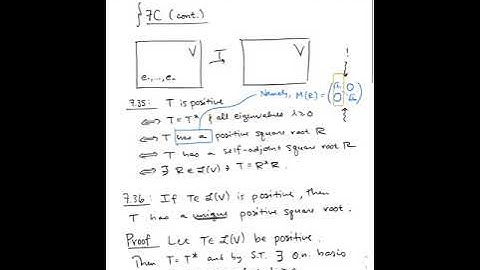 §7C (cont.)
V
I
V
e₁,...,eₙ
Namely, M(R) =
!
7.35: T is positive
⟺ T = T* & all eigenvalues λ≥0
⟺ T has a positive square root R
⟺ T has a self-adjoint square root R
⟺ ∃ R ∈ L(V) ∋ T = R*R.
7.36: If T∈L(V) is positive, then
T has a unique positive square root.
Proof Let T∈L(V) be positive.
Then T = T* and by S.T. ∃ o.n. basis